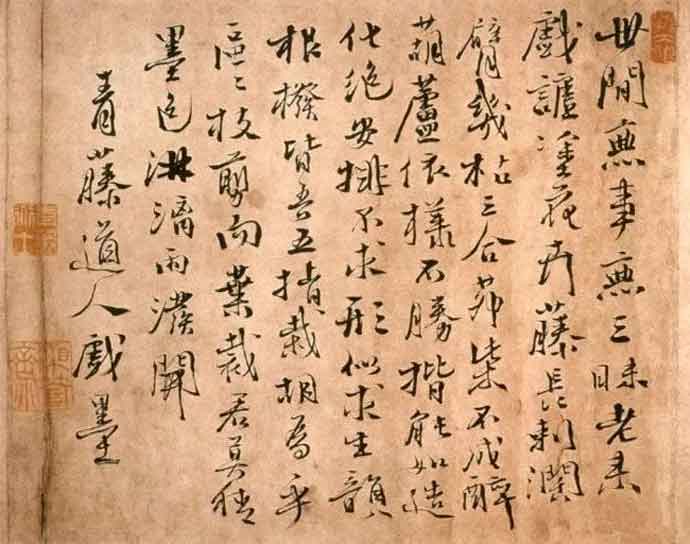 世間無事無三昧老來
戲謔塗花卉藤長刺濶
臂幾枯三合茅柴不成醉
葫蘆依樣不勝揩能如造
化絕安排不求形似求生韻
根撥皆吾五指栽胡為乎
區々枝剪而葉裁君莫猜
墨色淋漓雨潑開
青藤道人戲墨